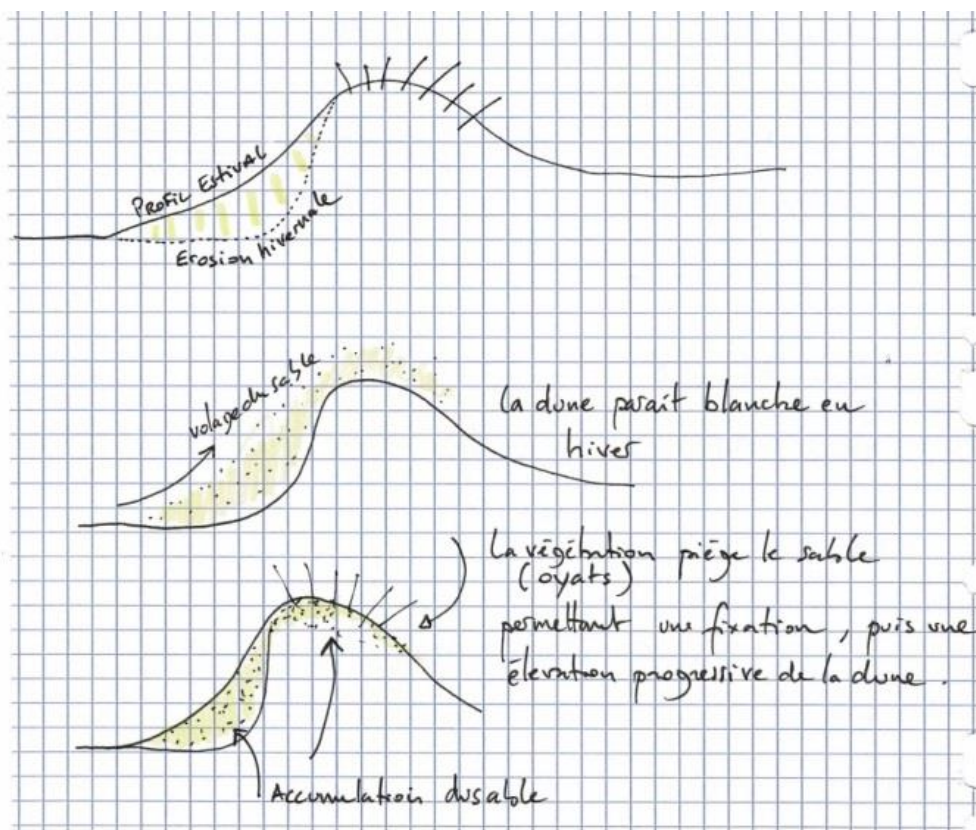 PROFIL ESTIVAL
Erosion hivernale
volage du sable
la dune parait blanche en
hiver
La végétation piège le sable
(oyats)
permettant une fixation, puis une
élevation progressive de la dune.
Accumulation du sable